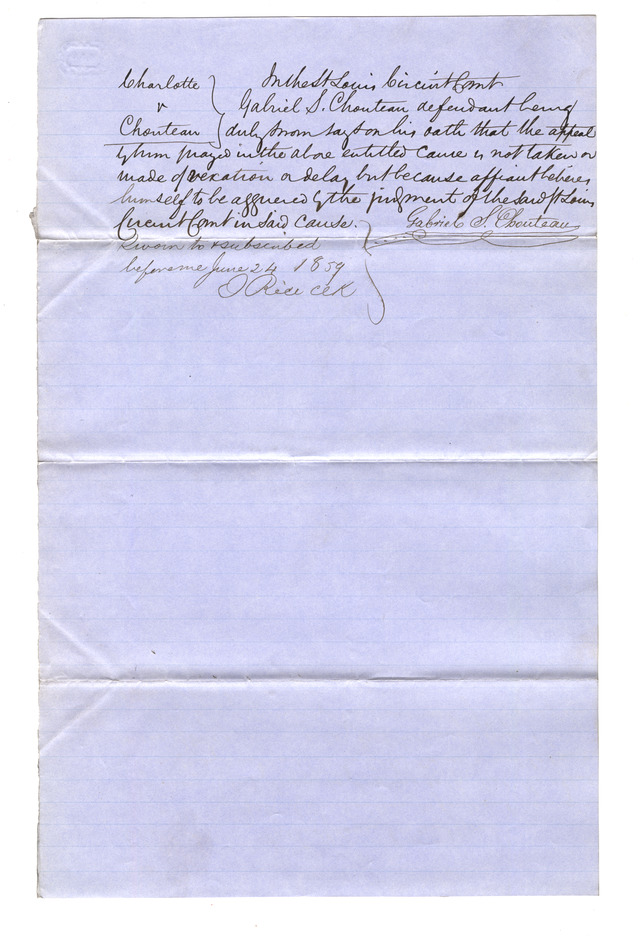 Charlotte
v
Chouteau
In the St Louis Circuit Court
Gabriel S. Chouteau defendant being
duly sworn says on his oath that the appeal
by him prayed in the above entitled cause is not taken or
made of vexation or delay but because affiant believes
himself to be aggrieved by the judgment of the said St Louis
Circuit Court in said cause.
Gabriel S. Chouteau
Sworn to & subscribed
before me June 24 1859
clk